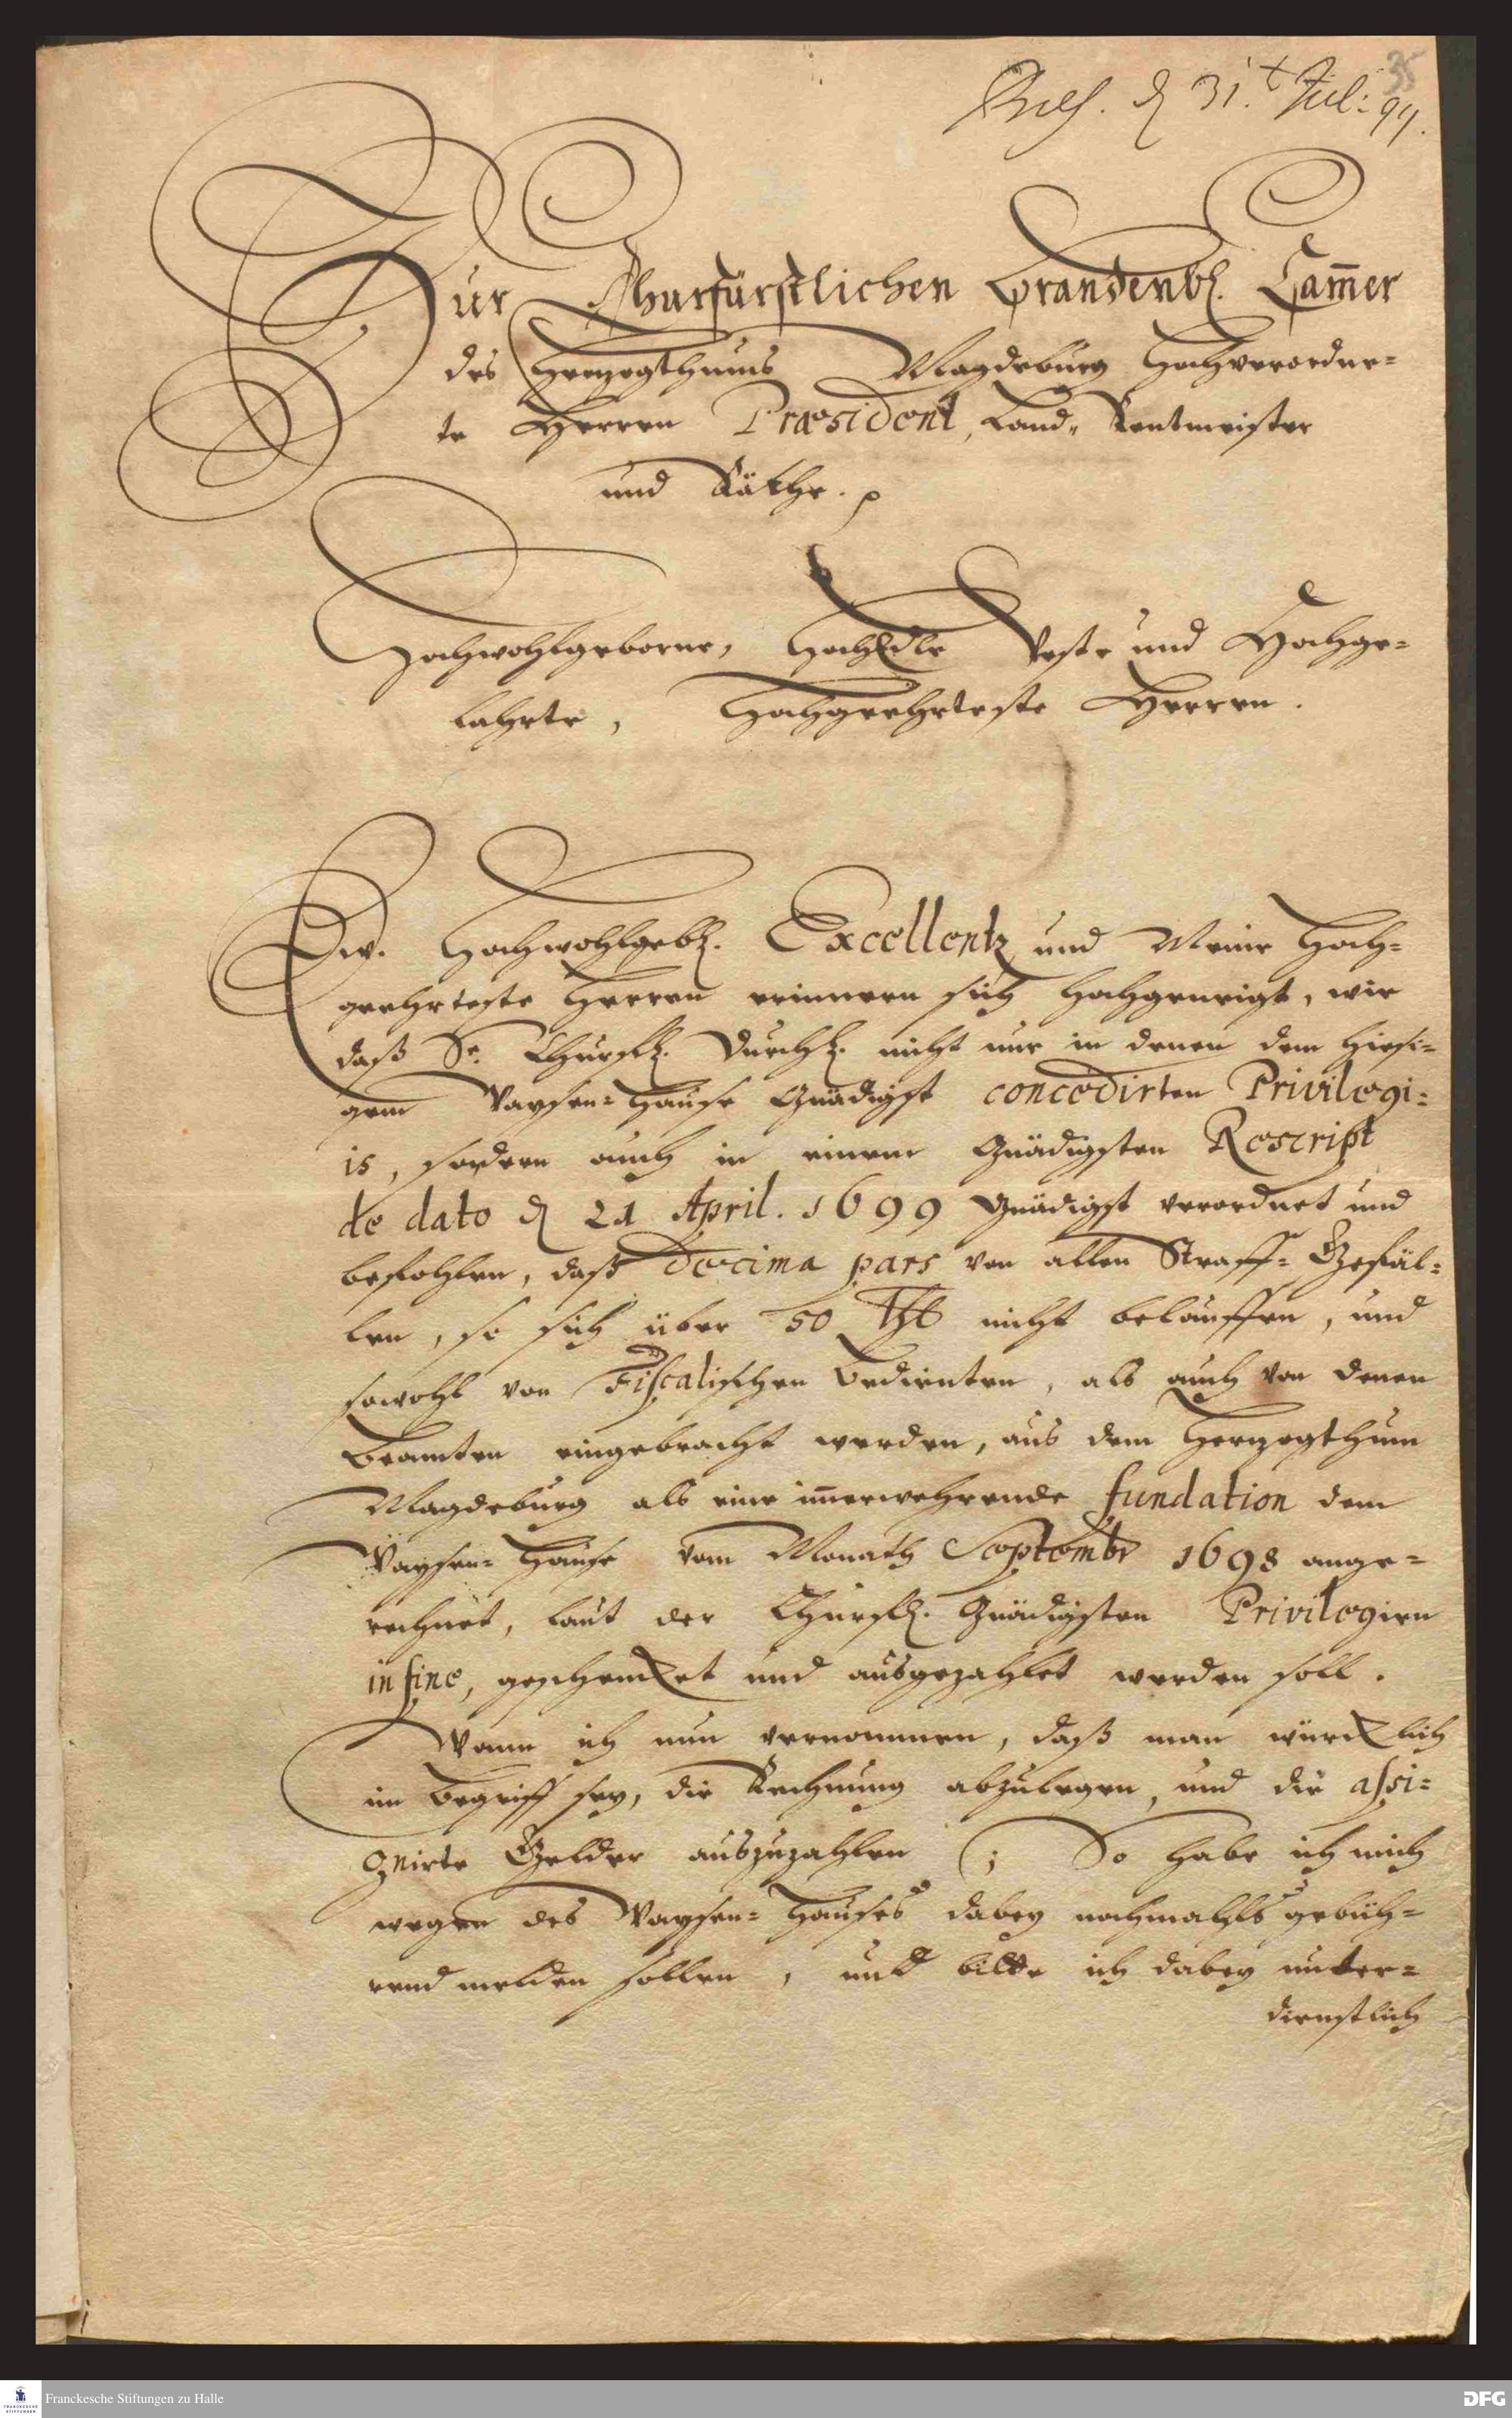 35
Præs. d 31.t Jul: 99.
Zur Churfürstlichen Brandenb. Cam̄er
des Hertzogthums Magdeburg Hochverordne-
te Herren Præsident, Land- Rentmeister
und Räthe. p
Hochwohlgeborne, HochEdle Veste und Hochge-
lahrte, Hochgeehrteste Herren.
Ew. Hochwohlgeb. Excellentz und Meine Hoch-
geehrteste Herren erinnern sich hochgeneigt, wie
daß Se. Churfl. Durchl. nicht nur in denen dem hiesi-
gem Waysen-Hause Gnädigst concedirten Privilegi-
is, sondern auch in einem Gnädigsten Rescript
de dato d 21 April. 1699 Gnädigst verordnet und
befohlen, daß decima pars von allen Straff-Gefäl-
len, so sich über 50 Thl nicht belauffen, und
sowohl von Fiscalischen Bedienten, als auch von denen
Beamten eingebracht werden, aus dem Hertzogthum
Magdeburg als eine im̄erwehrende fundation dem
Waysen-Hause vom Monath Septembr 1698 ange-
rechnet, laut der Churfl. Gnädigsten Privilegien
in fine, geschencket und ausgezahlet werden soll.
Wann ich nun vernommen, daß man würcklich
im Begriff sey, die Rechnung abzulegen, und die assi-
gnirte Gelder auszuzahlen; So habe ich mich
wegen des Waysen-Hauses dabey nochmahls gebüh-
rend melden sollen, und bitte ich dabey unter-
dienstlich
Franckesche Stiftungen zu Halle
DFG